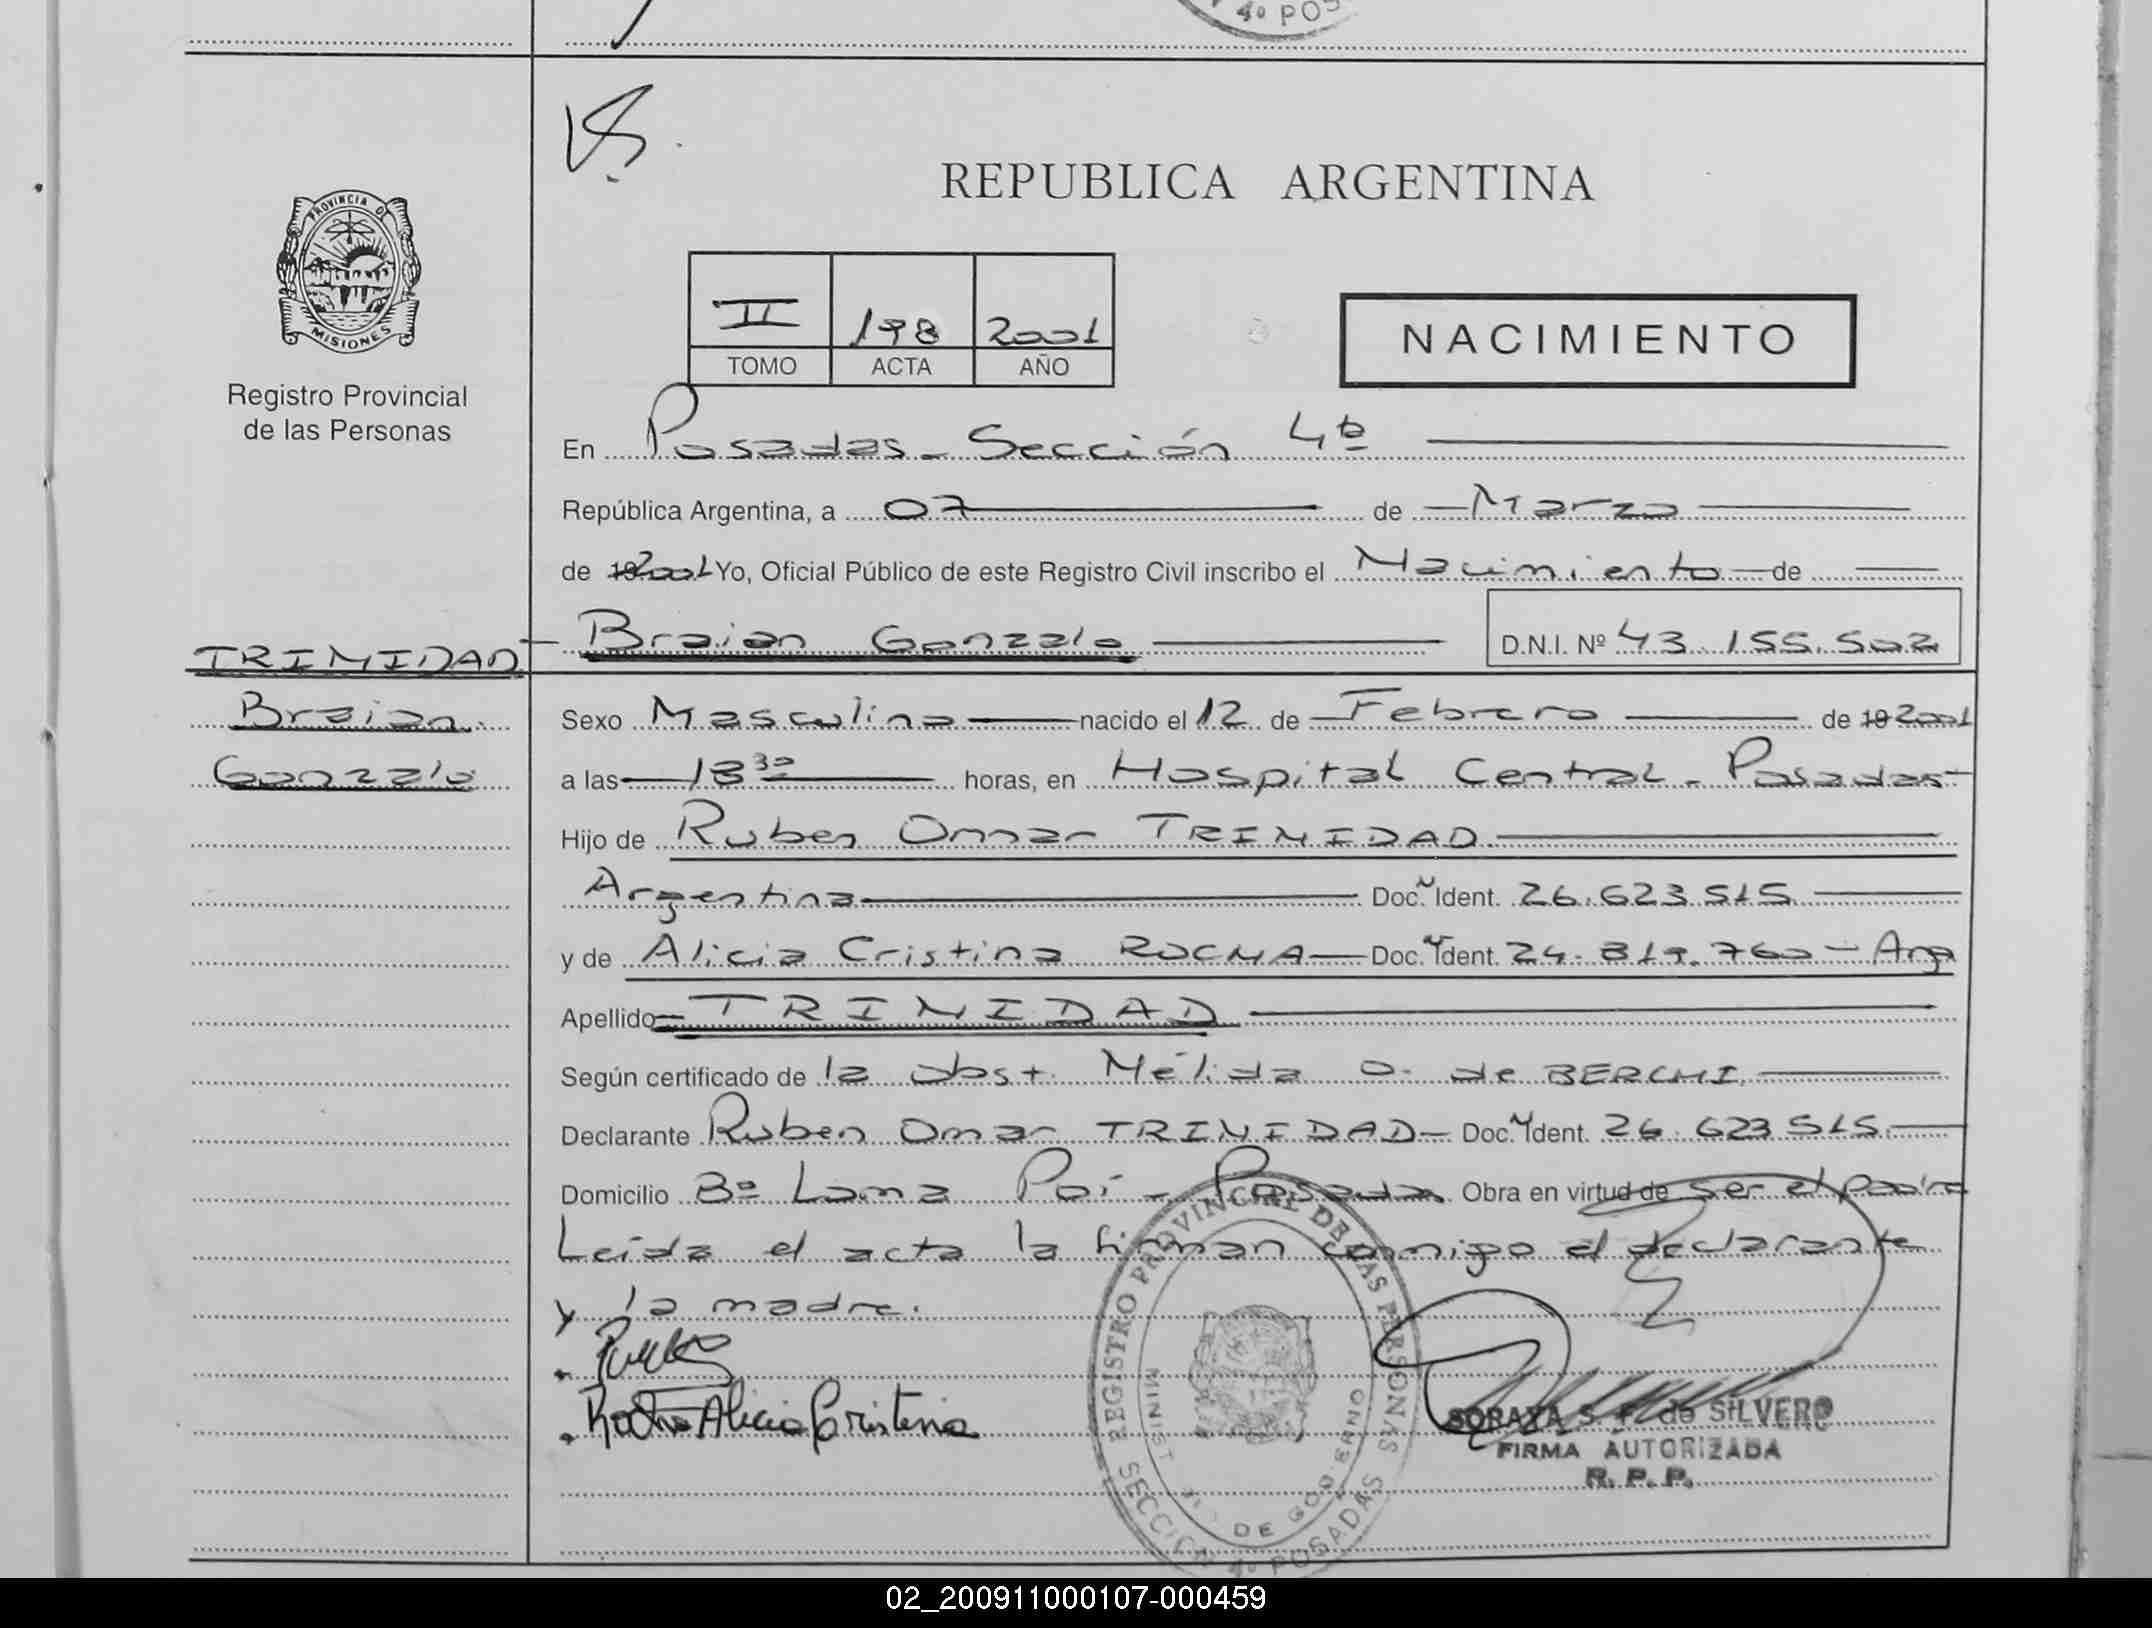 4º POS
REPUBLICA ARGENTINA
PROVINCIA DE
MISIONES
Registro Provincial
de las Personas
II 198 2001
TOMO ACTA AÑO
NACIMIENTO
En Posadas - Sección 4ta
República Argentina, a 07 de Marzo
de 19 2001 Yo, Oficial Público de este Registro Civil inscribo el Nacimiento de
TRINIDAD Braian Gonzalo D.N.I. Nº 43.155.502
Braian
Gonzalo
Sexo Masculino nacido el 12 de Febrero de 19 2001
a las 18 30 horas, en Hospital Central - Posadas
Hijo de Ruben Omar TRINIDAD
Argentina Doc. N Ident. 26.623.515
y de Alicia Cristina ROCHA Doc. N Ident. 24.819.760 - Arg
Apellido TRINIDAD
Según certificado de la obst. Nélida O. de BERCHI
Declarante Ruben Omar TRINIDAD Doc. N Ident. 26.623.515
Domicilio Bº Loma Poi - Posadas Obra en virtud de ser el padre
Leída el acta la firman conmigo el declarante
y la madre.
Rocha Alicia Cristina
REGISTRO PROVINCIAL DE LAS PERSONAS
DE GOBIERNO
SECCION 4º POSADAS
SORAYA S. F. de SILVERO
FIRMA AUTORIZADA
R. P. P.
02_200911000107-000459